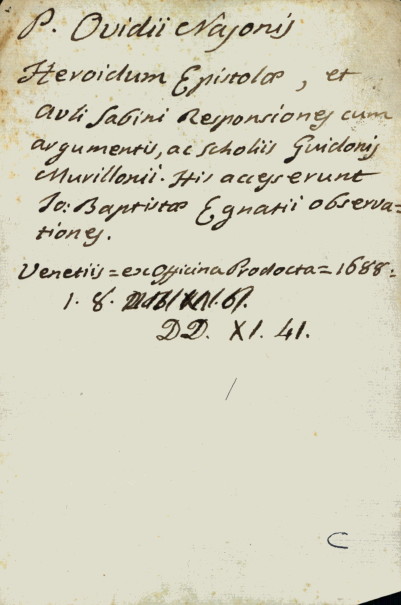 P. Ovidii Nasonis
Heroidum Epistolæ, et
Auli Sabini Responsiones cum
argumentis, ac scholiis Guidonis
Murillonii. His accesserunt
Io: Baptistæ Egnatii observa=
tiones.
Venetiis = ex Officina Prodocta = 1688 =
1. 8.
DD. XI. 41.
C